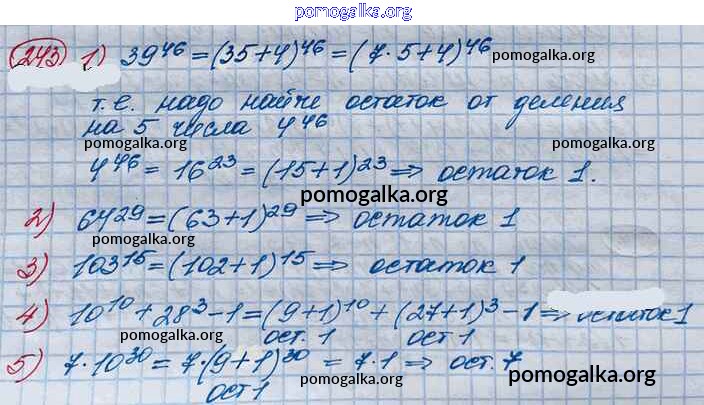 pomogalka.org
243 1) 39^46 = (35+4)^46 = (7·5+4)^46 pomogalka.org
т.е. надо найти остаток от деления
на 5 числа 4^46
pomogalka.org pomogalka.org
4^46 = 16^23 = (15+1)^23 ⇒ остаток 1.
pomogalka.org
2) 64^29 = (63+1)^29 ⇒ остаток 1
pomogalka.org
3) 103^15 = (102+1)^15 ⇒ остаток 1
4) 10^10 + 28^3 - 1 = (9+1)^10 + (27+1)^3 - 1 ⇒ остаток 1
pomogalka.org ост. 1 ост 1
5) 7·10^30 = 7·(9+1)^30 = 7·1 ⇒ ост. 7
ост 1 pomogalka.org pomogalka.org